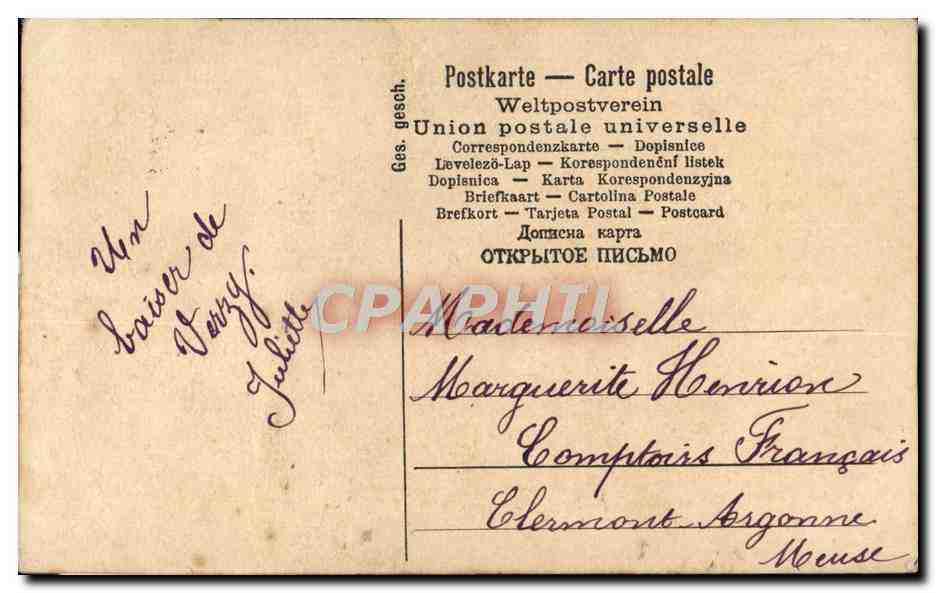 Postkarte — Carte postale
Weltpostverein
Union postale universelle
Correspondenzkarte — Dopisnice
Levelezö-Lap — Korespondenční listek
Dopisnica — Karta Korespondenzyjna
Briefkaart — Cartolina Postale
Brefkort — Tarjeta Postal — Postcard
Дописна карта
ОТКРЫТОЕ ПИСЬМО
Ges. gesch.
Un
baiser de
Verzy.
Juliette
CPAPHIL
Mademoiselle
Marguerite Henrion
Comptoirs Français
Clermont Argonne
Meuse